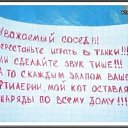 УВАЖАЕМЫЙ СОСЕД!!!
ПЕРЕСТАНЬТЕ ИГРАТЬ В ТАНКИ!!!
ИЛИ СДЕЛАЙТЕ ЗВУК ТИШЕ!!!
А ТО С КАЖДЫМ ЗАЛПОМ ВАШЕЙ
АРТИЛЕРИИ, МОЙ КОТ ОСТАВЛЯЕТ
СНАРЯДЫ ПО ВСЕМУ ДОМУ!!!!